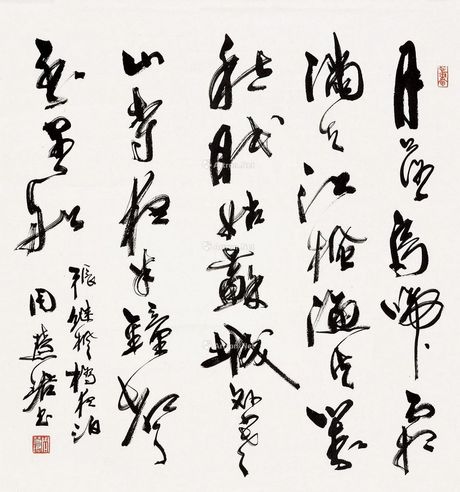 月落烏啼霜
滿天江楓漁火對
愁眠姑蘇城外寒
山寺夜半鐘聲
到客船
張继楓橋夜泊
周慧珺书